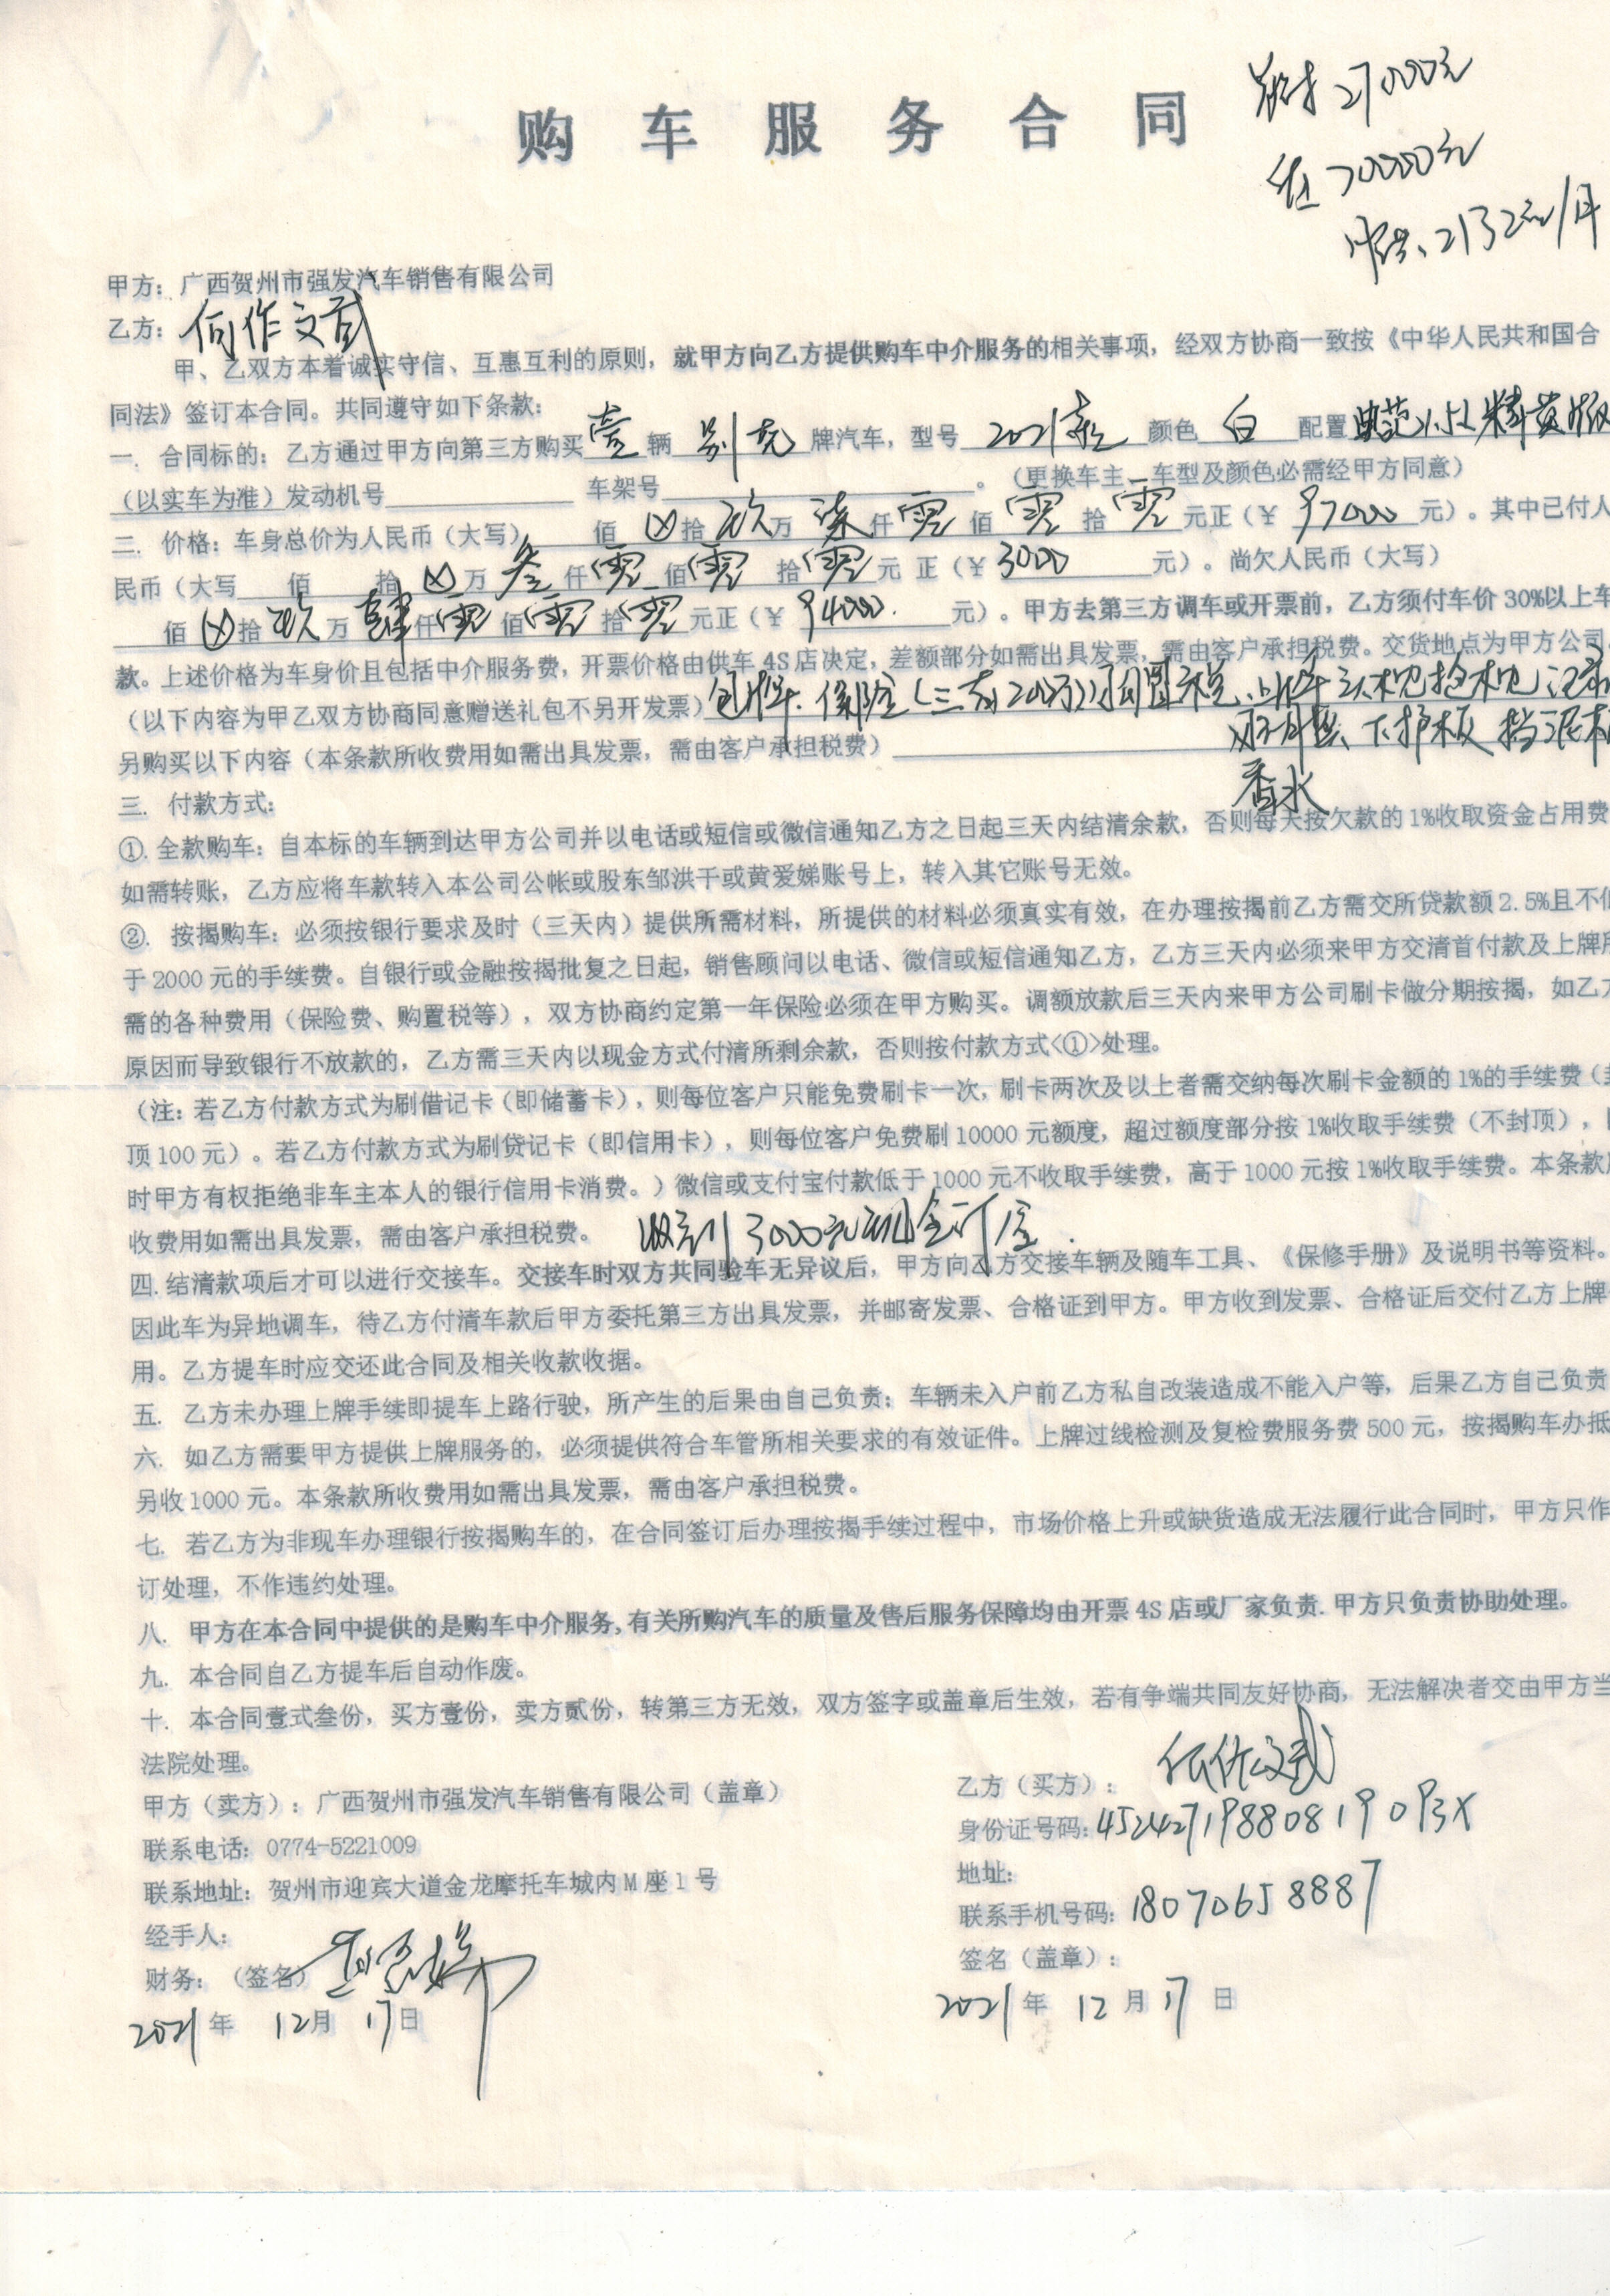 购车服务合同
首付27000元
贷70000元
月供:2132元/月
甲方:广西贺州市强发汽车销售有限公司
乙方:何作文武
甲、乙双方本着诚实守信、互惠互利的原则,就甲方向乙方提供购车中介服务的相关事项,经双方协商一致按《中华人民共和国合
同法》签订本合同。共同遵守如下条款:
一. 合同标的:乙方通过甲方向第三方购买壹辆别克牌汽车,型号2021款颜色白配置典范1.5L精英版
(以实车为准)发动机号 车架号 。(更换车主、车型及颜色必需经甲方同意)
二. 价格:车身总价为人民币(大写) 佰⊗拾玖万柒仟零佰零拾零元正(¥97000元)。其中已付人
民币(大写 佰 拾⊗万叁仟零佰零拾零元 正(¥3000元)。尚欠人民币(大写)
佰⊗拾玖万肆仟零佰零拾零元正(¥94000.元)。甲方去第三方调车或开票前,乙方须付车价30%以上车
款。上述价格为车身价且包括中介服务费,开票价格由供车4S店决定,差额部分如需出具发票,需由客户承担税费。交货地点为甲方公司
(以下内容为甲乙双方协商同意赠送礼包不另开发票)包牌.保险(三者200万)购置税、上牌
下护板 挡泥板
另购买以下内容(本条款所收费用如需出具发票,需由客户承担税费)
香水
三. 付款方式:
①. 全款购车:自本标的车辆到达甲方公司并以电话或短信或微信通知乙方之日起三天内结清余款,否则每天按欠款的1%收取资金占用费
如需转账,乙方应将车款转入本公司公帐或股东邹洪干或黄爱娣账号上,转入其它账号无效。
②. 按揭购车:必须按银行要求及时(三天内)提供所需材料,所提供的材料必须真实有效,在办理按揭前乙方需交所贷款额2.5%且不低
于2000元的手续费。自银行或金融按揭批复之日起,销售顾问以电话、微信或短信通知乙方,乙方三天内必须来甲方交清首付款及上牌所
需的各种费用(保险费、购置税等),双方协商约定第一年保险必须在甲方购买。调额放款后三天内来甲方公司刷卡做分期按揭,如乙方
原因而导致银行不放款的,乙方需三天内以现金方式付清所剩余款,否则按付款方式<①>处理。
(注:若乙方付款方式为刷借记卡(即储蓄卡),则每位客户只能免费刷卡一次,刷卡两次及以上者需交纳每次刷卡金额的1%的手续费(封
顶100元)。若乙方付款方式为刷贷记卡(即信用卡),则每位客户免费刷10000元额度,超过额度部分按1%收取手续费(不封顶),同
时甲方有权拒绝非车主本人的银行信用卡消费。)微信或支付宝付款低于1000元不收取手续费,高于1000元按1%收取手续费。本条款所
收费用如需出具发票,需由客户承担税费。 收到3000元现金订金.
四. 结清款项后才可以进行交接车。交接车时双方共同验车无异议后,甲方向乙方交接车辆及随车工具、《保修手册》及说明书等资料。
因此车为异地调车,待乙方付清车款后甲方委托第三方出具发票,并邮寄发票、合格证到甲方。甲方收到发票、合格证后交付乙方上牌
用。乙方提车时应交还此合同及相关收款收据。
五. 乙方未办理上牌手续即提车上路行驶,所产生的后果由自己负责;车辆未入户前乙方私自改装造成不能入户等,后果乙方自己负责
六. 如乙方需要甲方提供上牌服务的,必须提供符合车管所相关要求的有效证件。上牌过线检测及复检费服务费500元,按揭购车办抵
另收1000元。本条款所收费用如需出具发票,需由客户承担税费。
七. 若乙方为非现车办理银行按揭购车的,在合同签订后办理按揭手续过程中,市场价格上升或缺货造成无法履行此合同时,甲方只作
订处理,不作违约处理。
八. 甲方在本合同中提供的是购车中介服务,有关所购汽车的质量及售后服务保障均由开票4S店或厂家负责.甲方只负责协助处理。
九. 本合同自乙方提车后自动作废。
十. 本合同壹式叁份,买方壹份,卖方贰份,转第三方无效,双方签字或盖章后生效,若有争端共同友好协商,无法解决者交由甲方当
法院处理。
甲方(卖方):广西贺州市强发汽车销售有限公司(盖章)
联系电话:0774-5221009
联系地址:贺州市迎宾大道金龙摩托车城内M座1号
经手人:
财务:(签名)黄爱娣
2021年 12月 17日
乙方(买方):何作文武
身份证号码:45242719880819093X
地址:
联系手机号码:18070658887
签名(盖章):
2021年 12月 17日